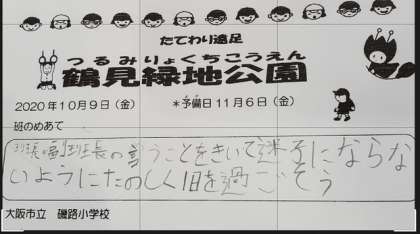 たてわり遠足
つるみりょくちこうえん
鶴見緑地公園
2020年10月9日（金） ＊予備日11月6日（金）
班のめあて
班長副班長の言うことをきいて迷子にならな
いようにたのしく1日を過ごそう
大阪市立 磯路小学校